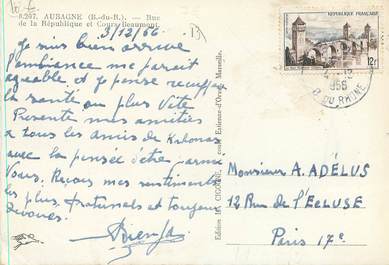 8.267. AUBAGNE (B.-du-R.). — Rue
de la République et Cours Beaumont.
3/12/56
Je suis bien arrivé
l'ambiance me parait
agréable et je pense recuperer
la santé au plus vite
Presente mes amitiés
a tous les amis de
avec la pensée d'être parmi
Vous. Reçois mes sentiments
les plus fraternels et toujours
RÉPUBLIQUE FRANÇAISE
12F
1956
B. DU RHONE
Marseille.
Monsieur A. ADELUS
12 Rue de l'ECLUSE
Paris 17e